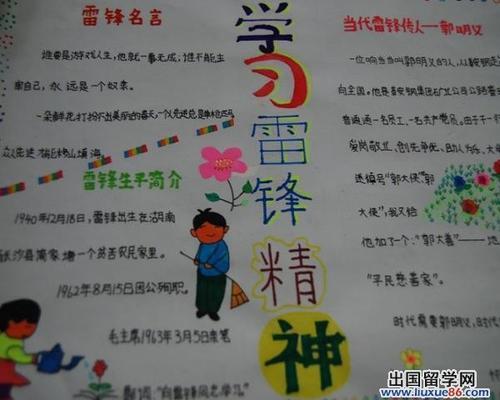 雷锋名言
谁要是游戏人生,他就一事无成;谁不能主
宰自己,永远是一个奴隶。
一朵鲜花打扮不出美丽的春天,一个人先进总是单枪匹马
众人先进才能移山填海。
雷锋生平简介
1940年12月18日,雷锋出生在湖南
长沙县简家塘一个贫苦农民家里。
1962年8月15日因公殉职。
毛主席1963年3月5日亲笔
题词:“向雷锋同志学习”
学习雷锋精神
当代雷锋传人——郭明义
一位响当当叫郭明义的人,从鞍钢走
向全国。他是鞍钢集团矿业公司公路管
普通通一名员工,一名共产党员。由于
爱岗敬业、创先争优、助人为乐、
送绰号“郭大侠”
大侠”,我又给
他加了个“郭大善”——
“平民慈善家”。
时代需要郭明义,时
出国留学网
www.liuxue86.com